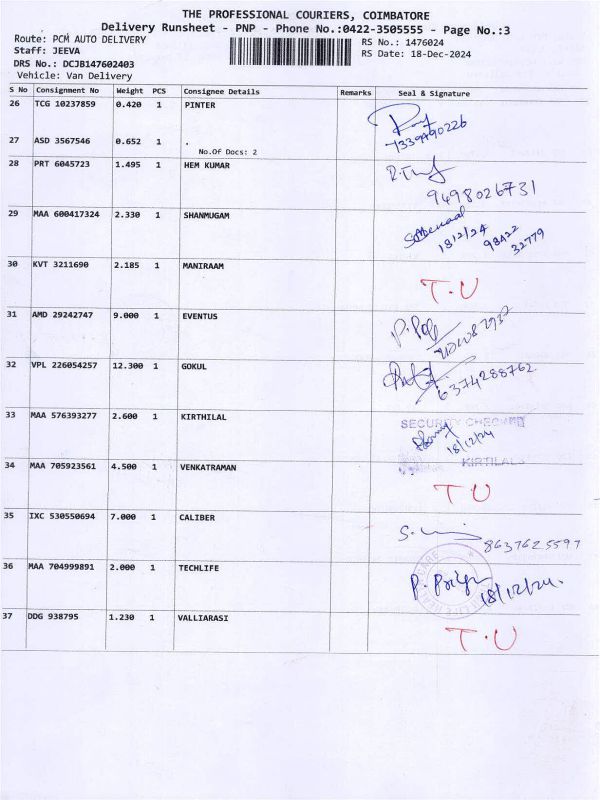 THE PROFESSIONAL COURIERS, COIMBATORE
Delivery Runsheet - PNP - Phone No.:0422-3505555 - Page No.:3
Route: PCM AUTO DELIVERY
RS No.: 1476024
Staff: JEEVA
RS Date: 18-Dec-2024
DRS No.: DCJB147602403
Vehicle: Van Delivery
S No Consignment No Weight PCS Consignee Details Remarks Seal & Signature
26 TCG 10237859 0.420 1 PINTER
7339490226
27 ASD 3567546 0.652 1 .
No.Of Docs: 2
28 PRT 6045723 1.495 1 HEM KUMAR
9498026731
29 MAA 600417324 2.330 1 SHANMUGAM
18/12/24 98422
32779
30 KVT 3211690 2.185 1 MANIRAAM
T.U
31 AMD 29242747 9.000 1 EVENTUS
32 VPL 226054257 12.300 1 GOKUL
6374288762
33 MAA 576393277 2.600 1 KIRTHILAL
SECURITY CHECKED
18/12/24
KIRTILAL
34 MAA 705923561 4.500 1 VENKATRAMAN
TU
35 IXC 530550694 7.000 1 CALIBER
8637625597
36 MAA 704999891 2.000 1 TECHLIFE
18/12/24.
37 DDG 938795 1.230 1 VALLIARASI
T.U